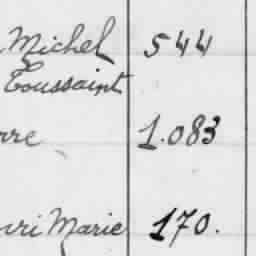 Michel 544
Toussaint
rre 1.083
nri Marie 170.